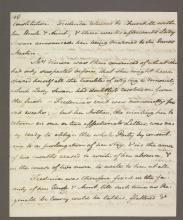 constitution. Frederica returned to Churchill with
her Uncle & Aunt, & three weeks afterwards Lady
Susan announced her being married to Sir James
Martin.
Mrs Vernon was then convinced of what she
had only suspected before, that she might have
spared herself all the trouble of urging a removal,
which Lady Susan had doubtless resolved on from
the first. Frederica's visit was nominally for
six weeks; but her Mother, tho' inviting her to
return in one or two affectionate Letters, was very
ready to oblige the whole Party by consent-
ing to a prolongation of her stay, & in the course of
two months ceased to write of her absence, &
in the course of two more, to write to her at all.
Frederica was therefore fixed in the fa-
mily of her Uncle & Aunt, till such time as Re-
ginald De Courcy could be talked, flattered &